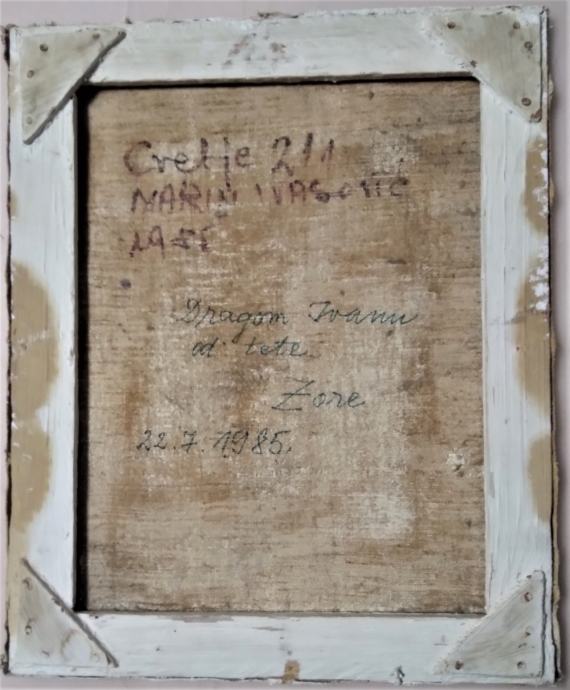 Cvetje 2/1
MARIJ VASOVIC
Dragom Ivanu
od tete
Zore
22.7.1985.